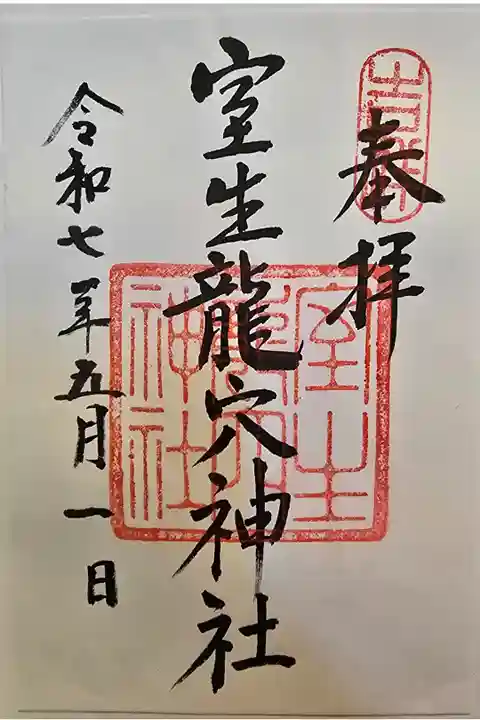 奉拝
室生龍穴神社
令和七年五月一日
室生
龍穴
神社